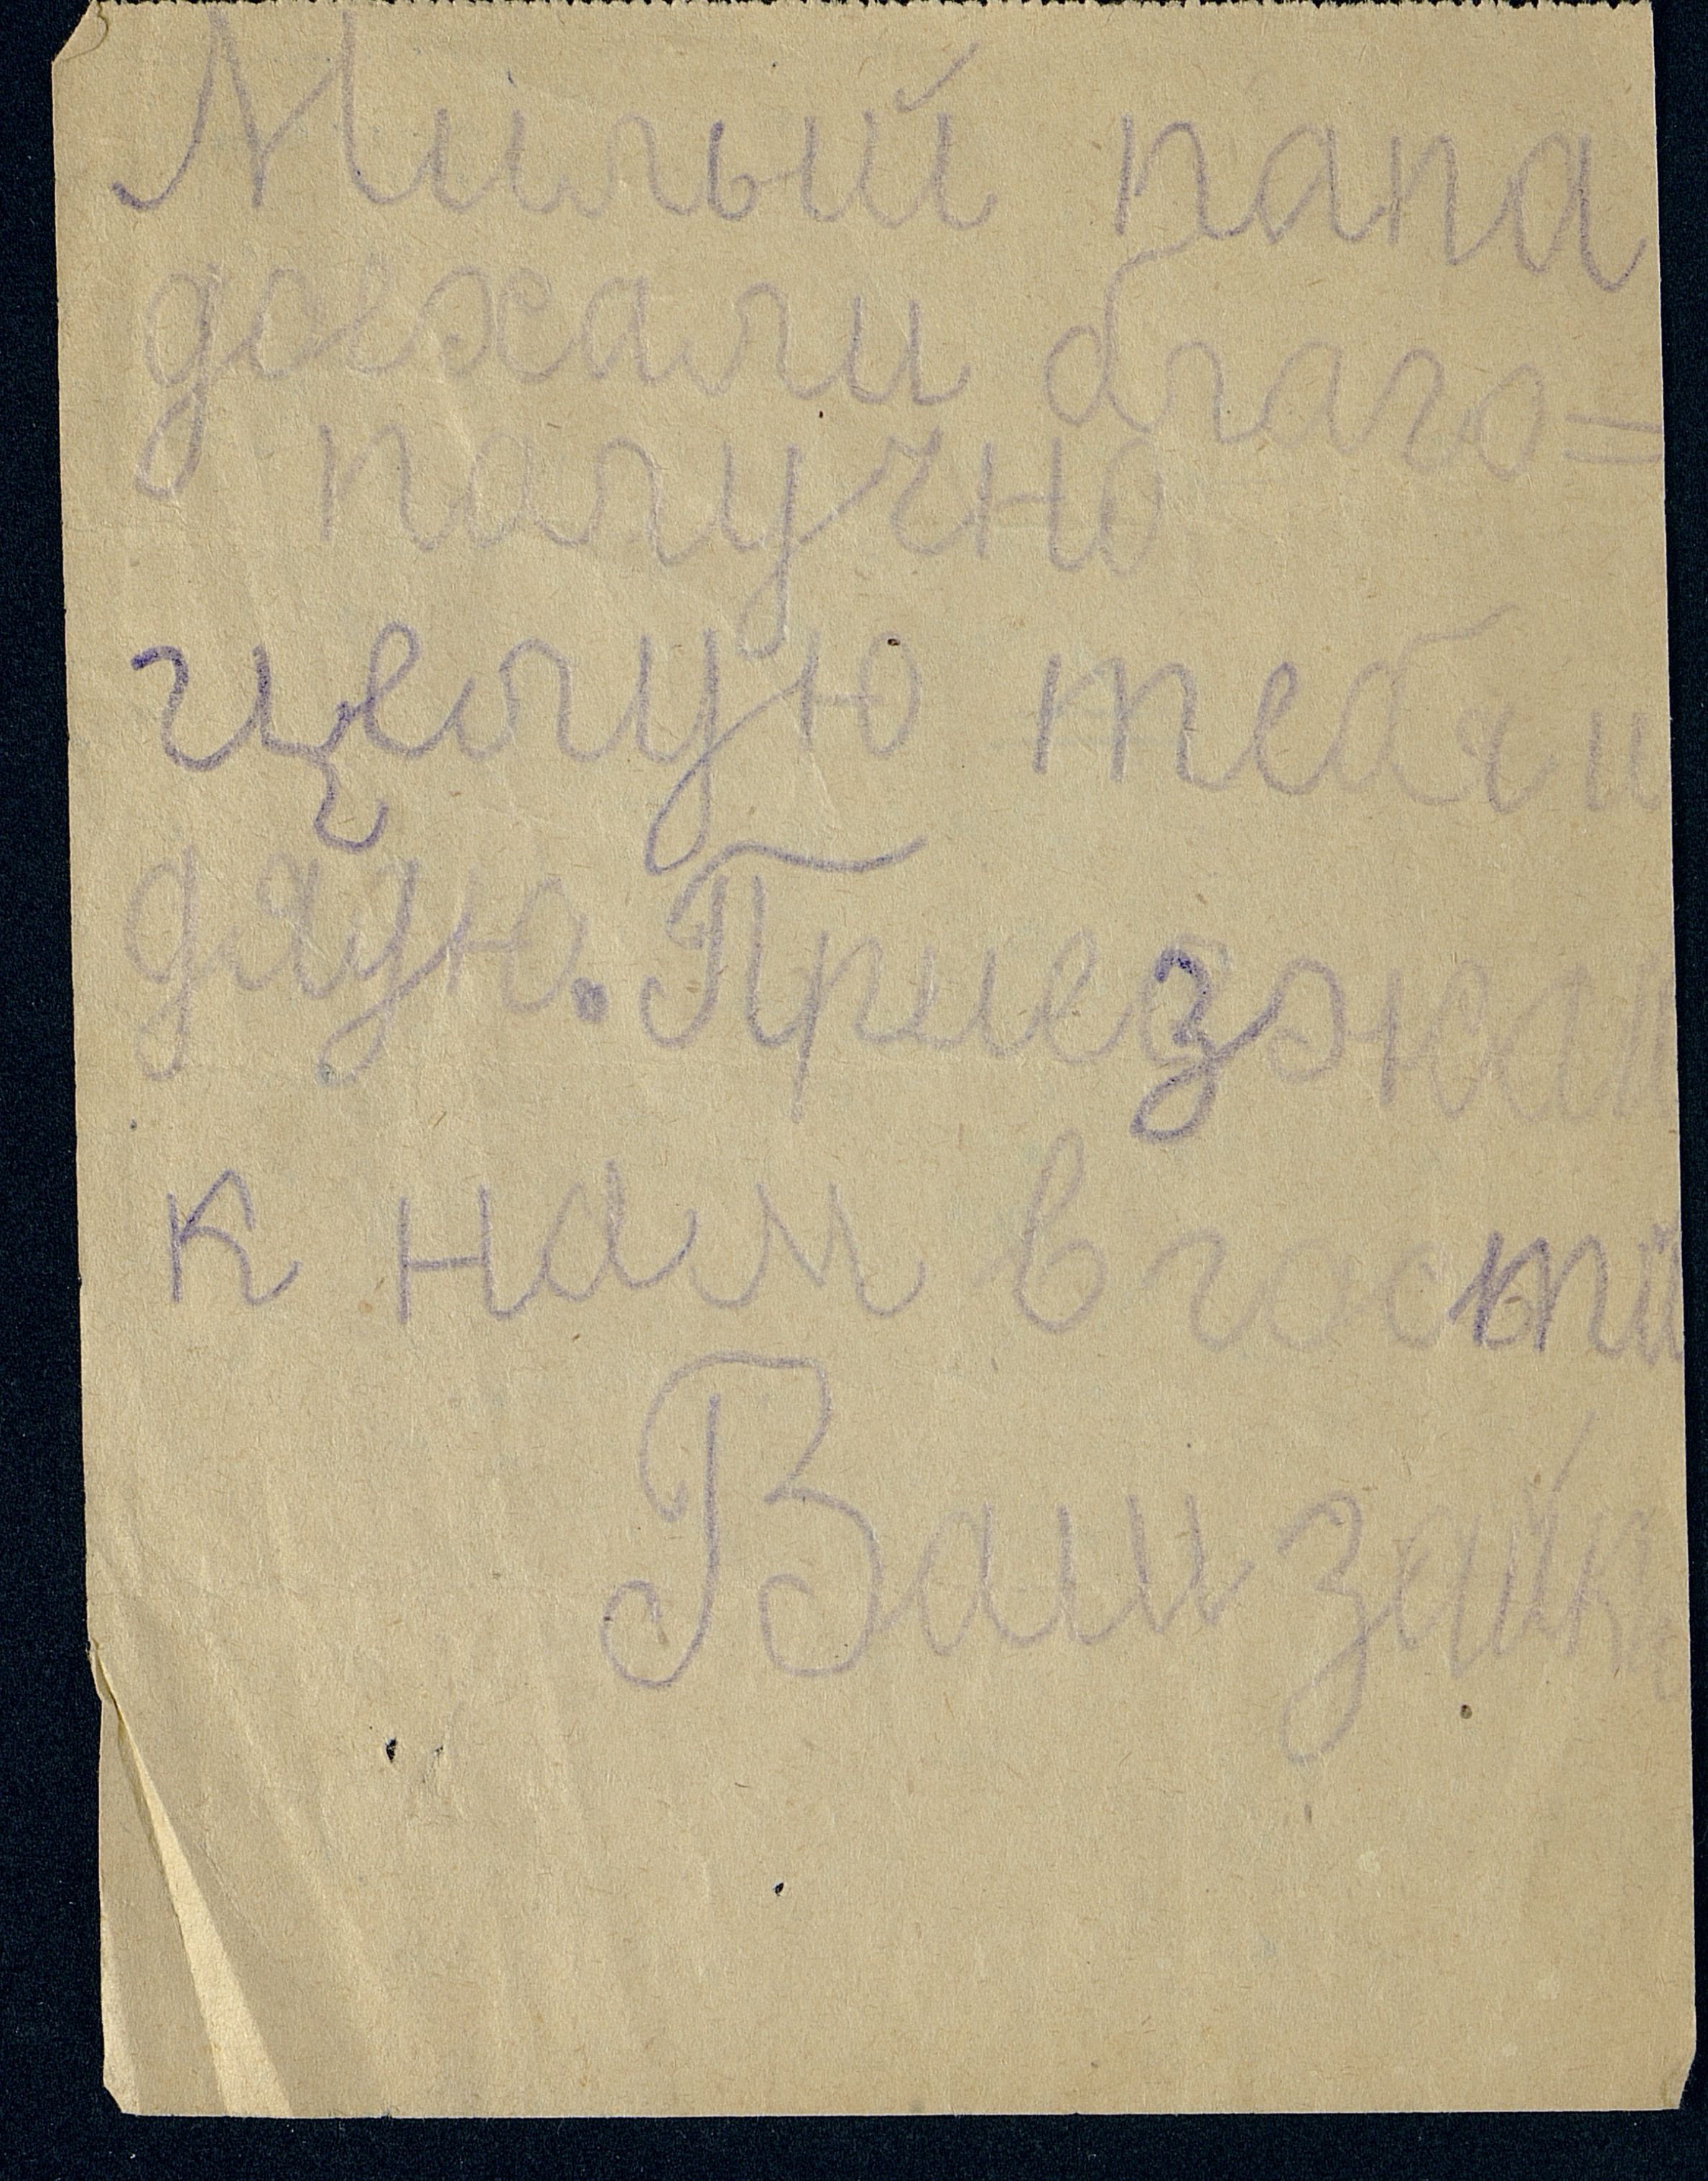 Милый папа
доехали благо=
получно
целую тебя и
дядю. Приезжай
к нам в гости
Ваш зайка